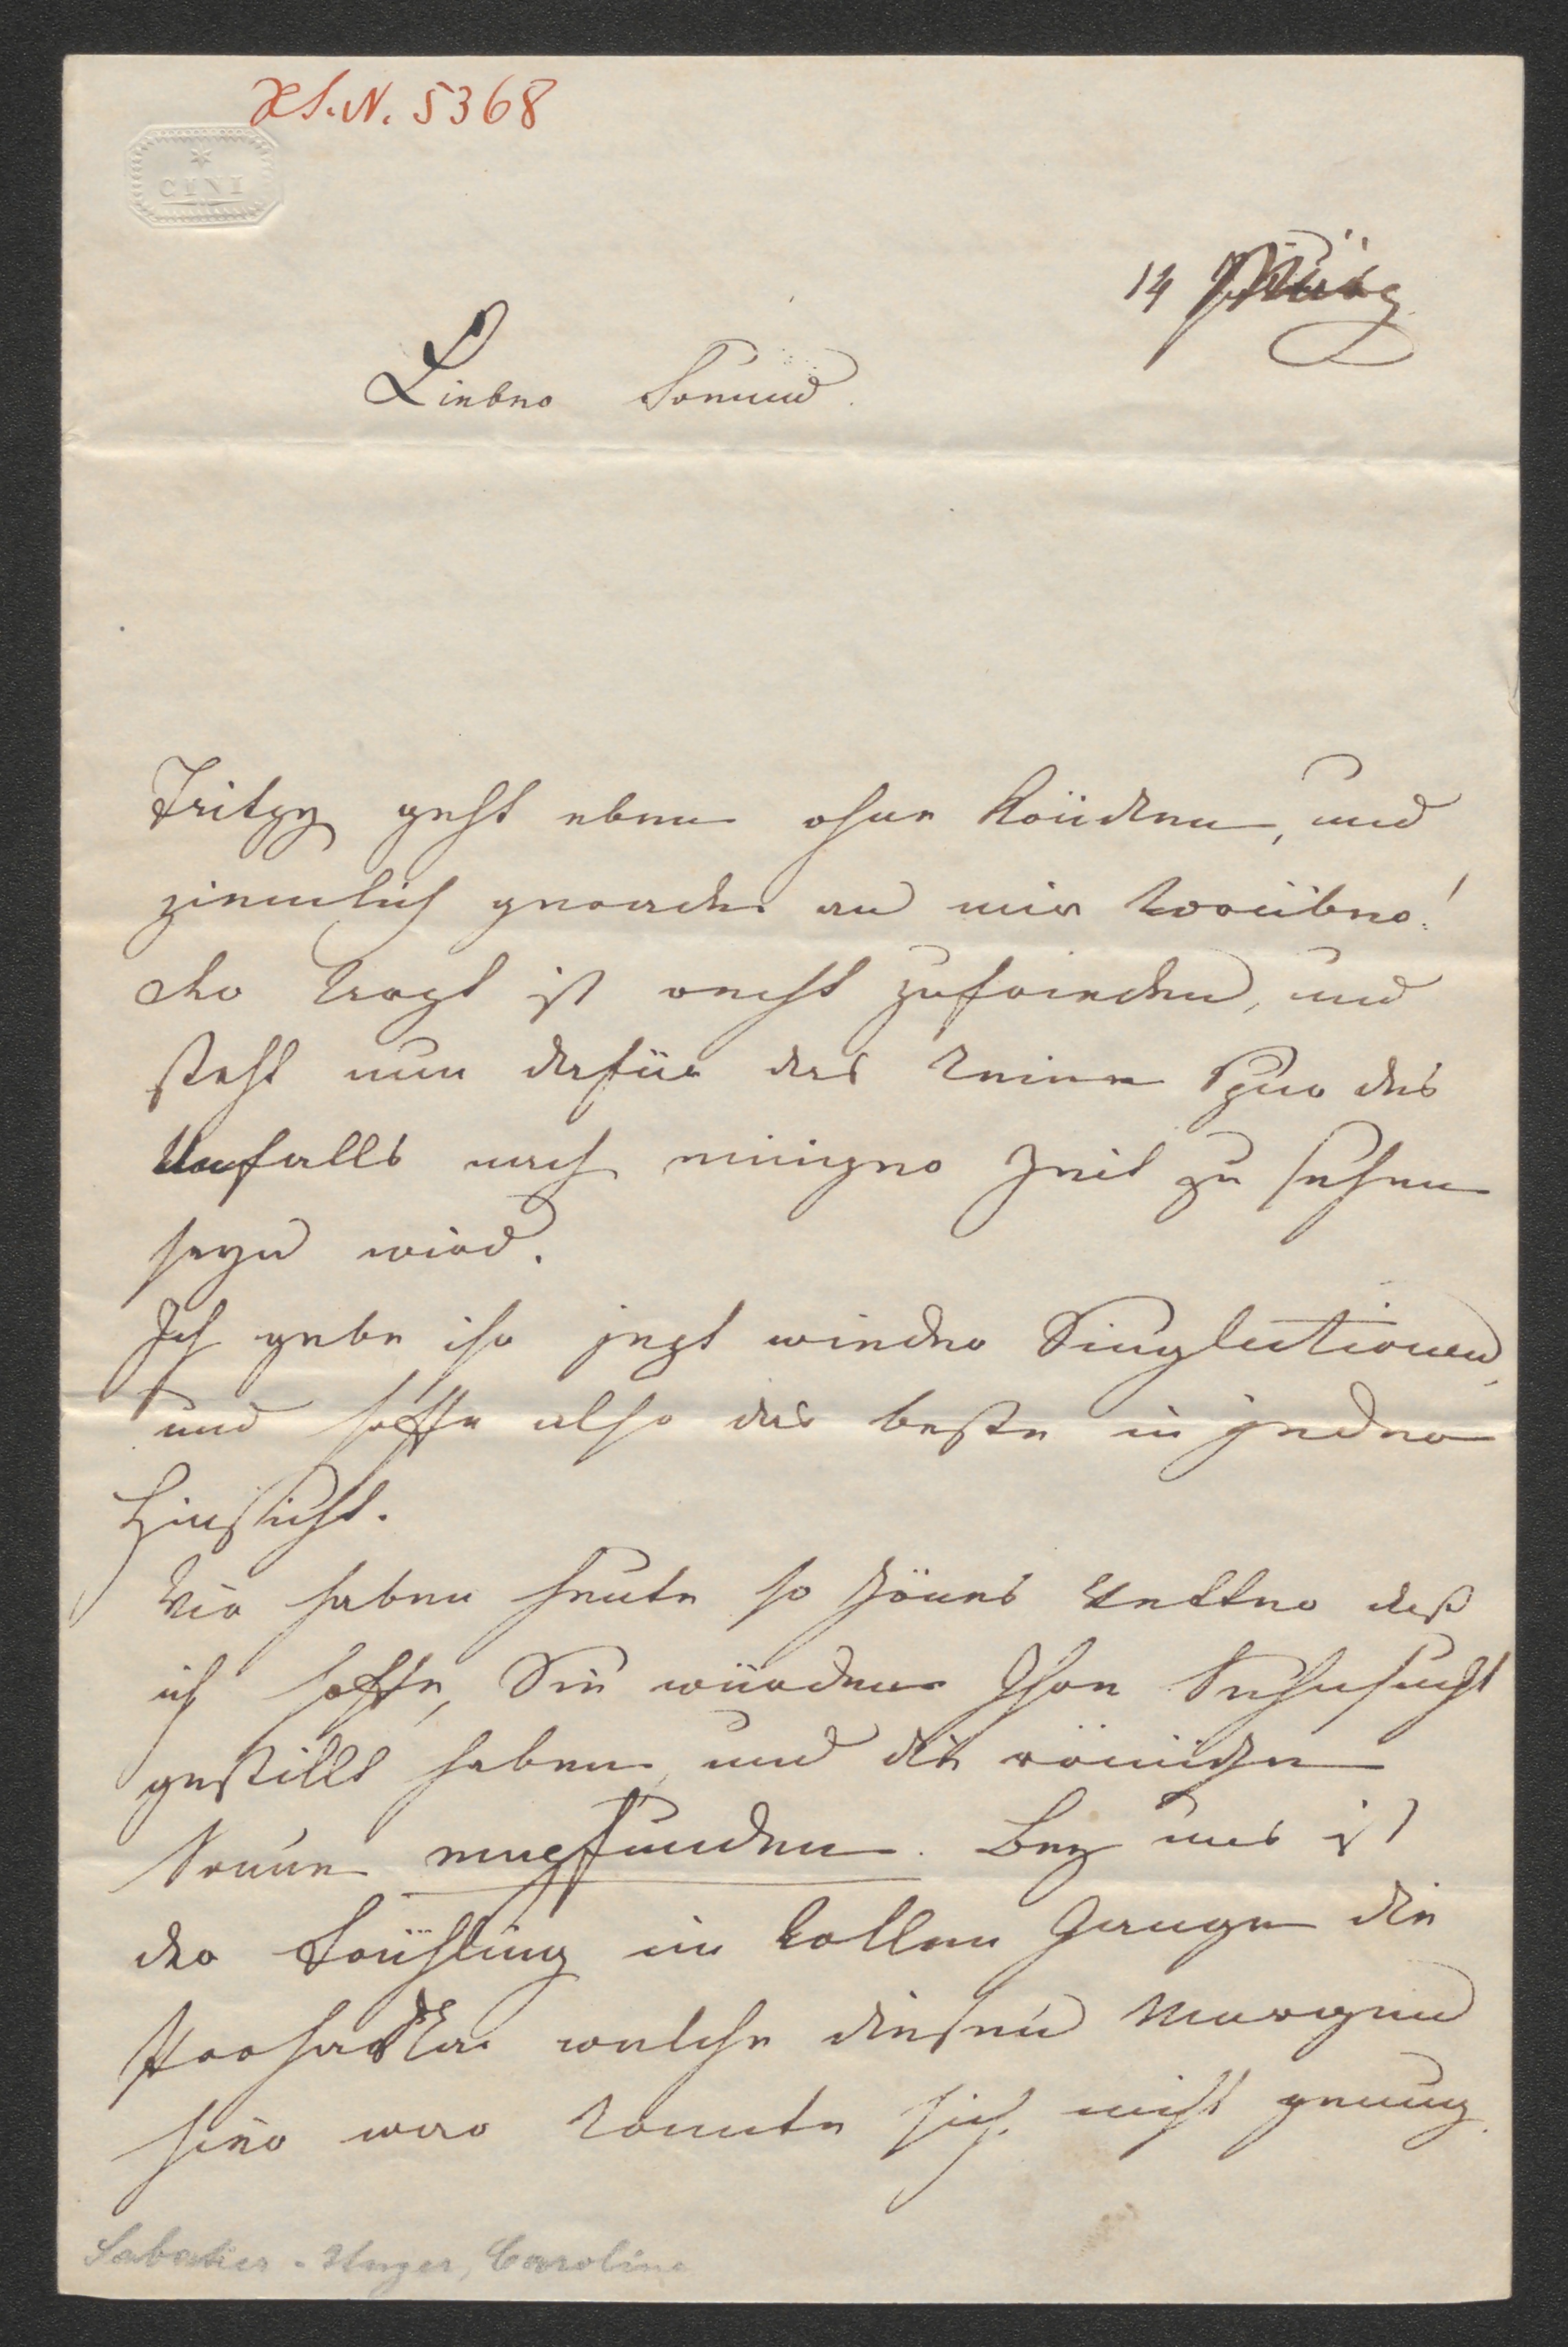 HS.N. 5368
CINI
14 März
Lieber Freund.
Fritzy geht eben ohne Krücken, und
ziemlich gerade an mir vorüber!
der Arzt ist recht zufrieden, und
steht nun dafür das keine Spur des
Unfalls nach einiger Zeit zu sehen
seyn wird.
Ich gebe ihr jezt wieder Singlectionen,
und hoffe also das beste in jeder
Hinsicht.
Wir haben heute so schönes Wetter daß
ich hoffe, Sie würden Ihre Sehnsucht
gestillt haben, und die römische
Sonne empfunden. Bey uns ist
der Frühling in vollem Gange die
welche diesen Morgen
hier war konnte sich nicht genug
Sabatier-Unger, Caroline